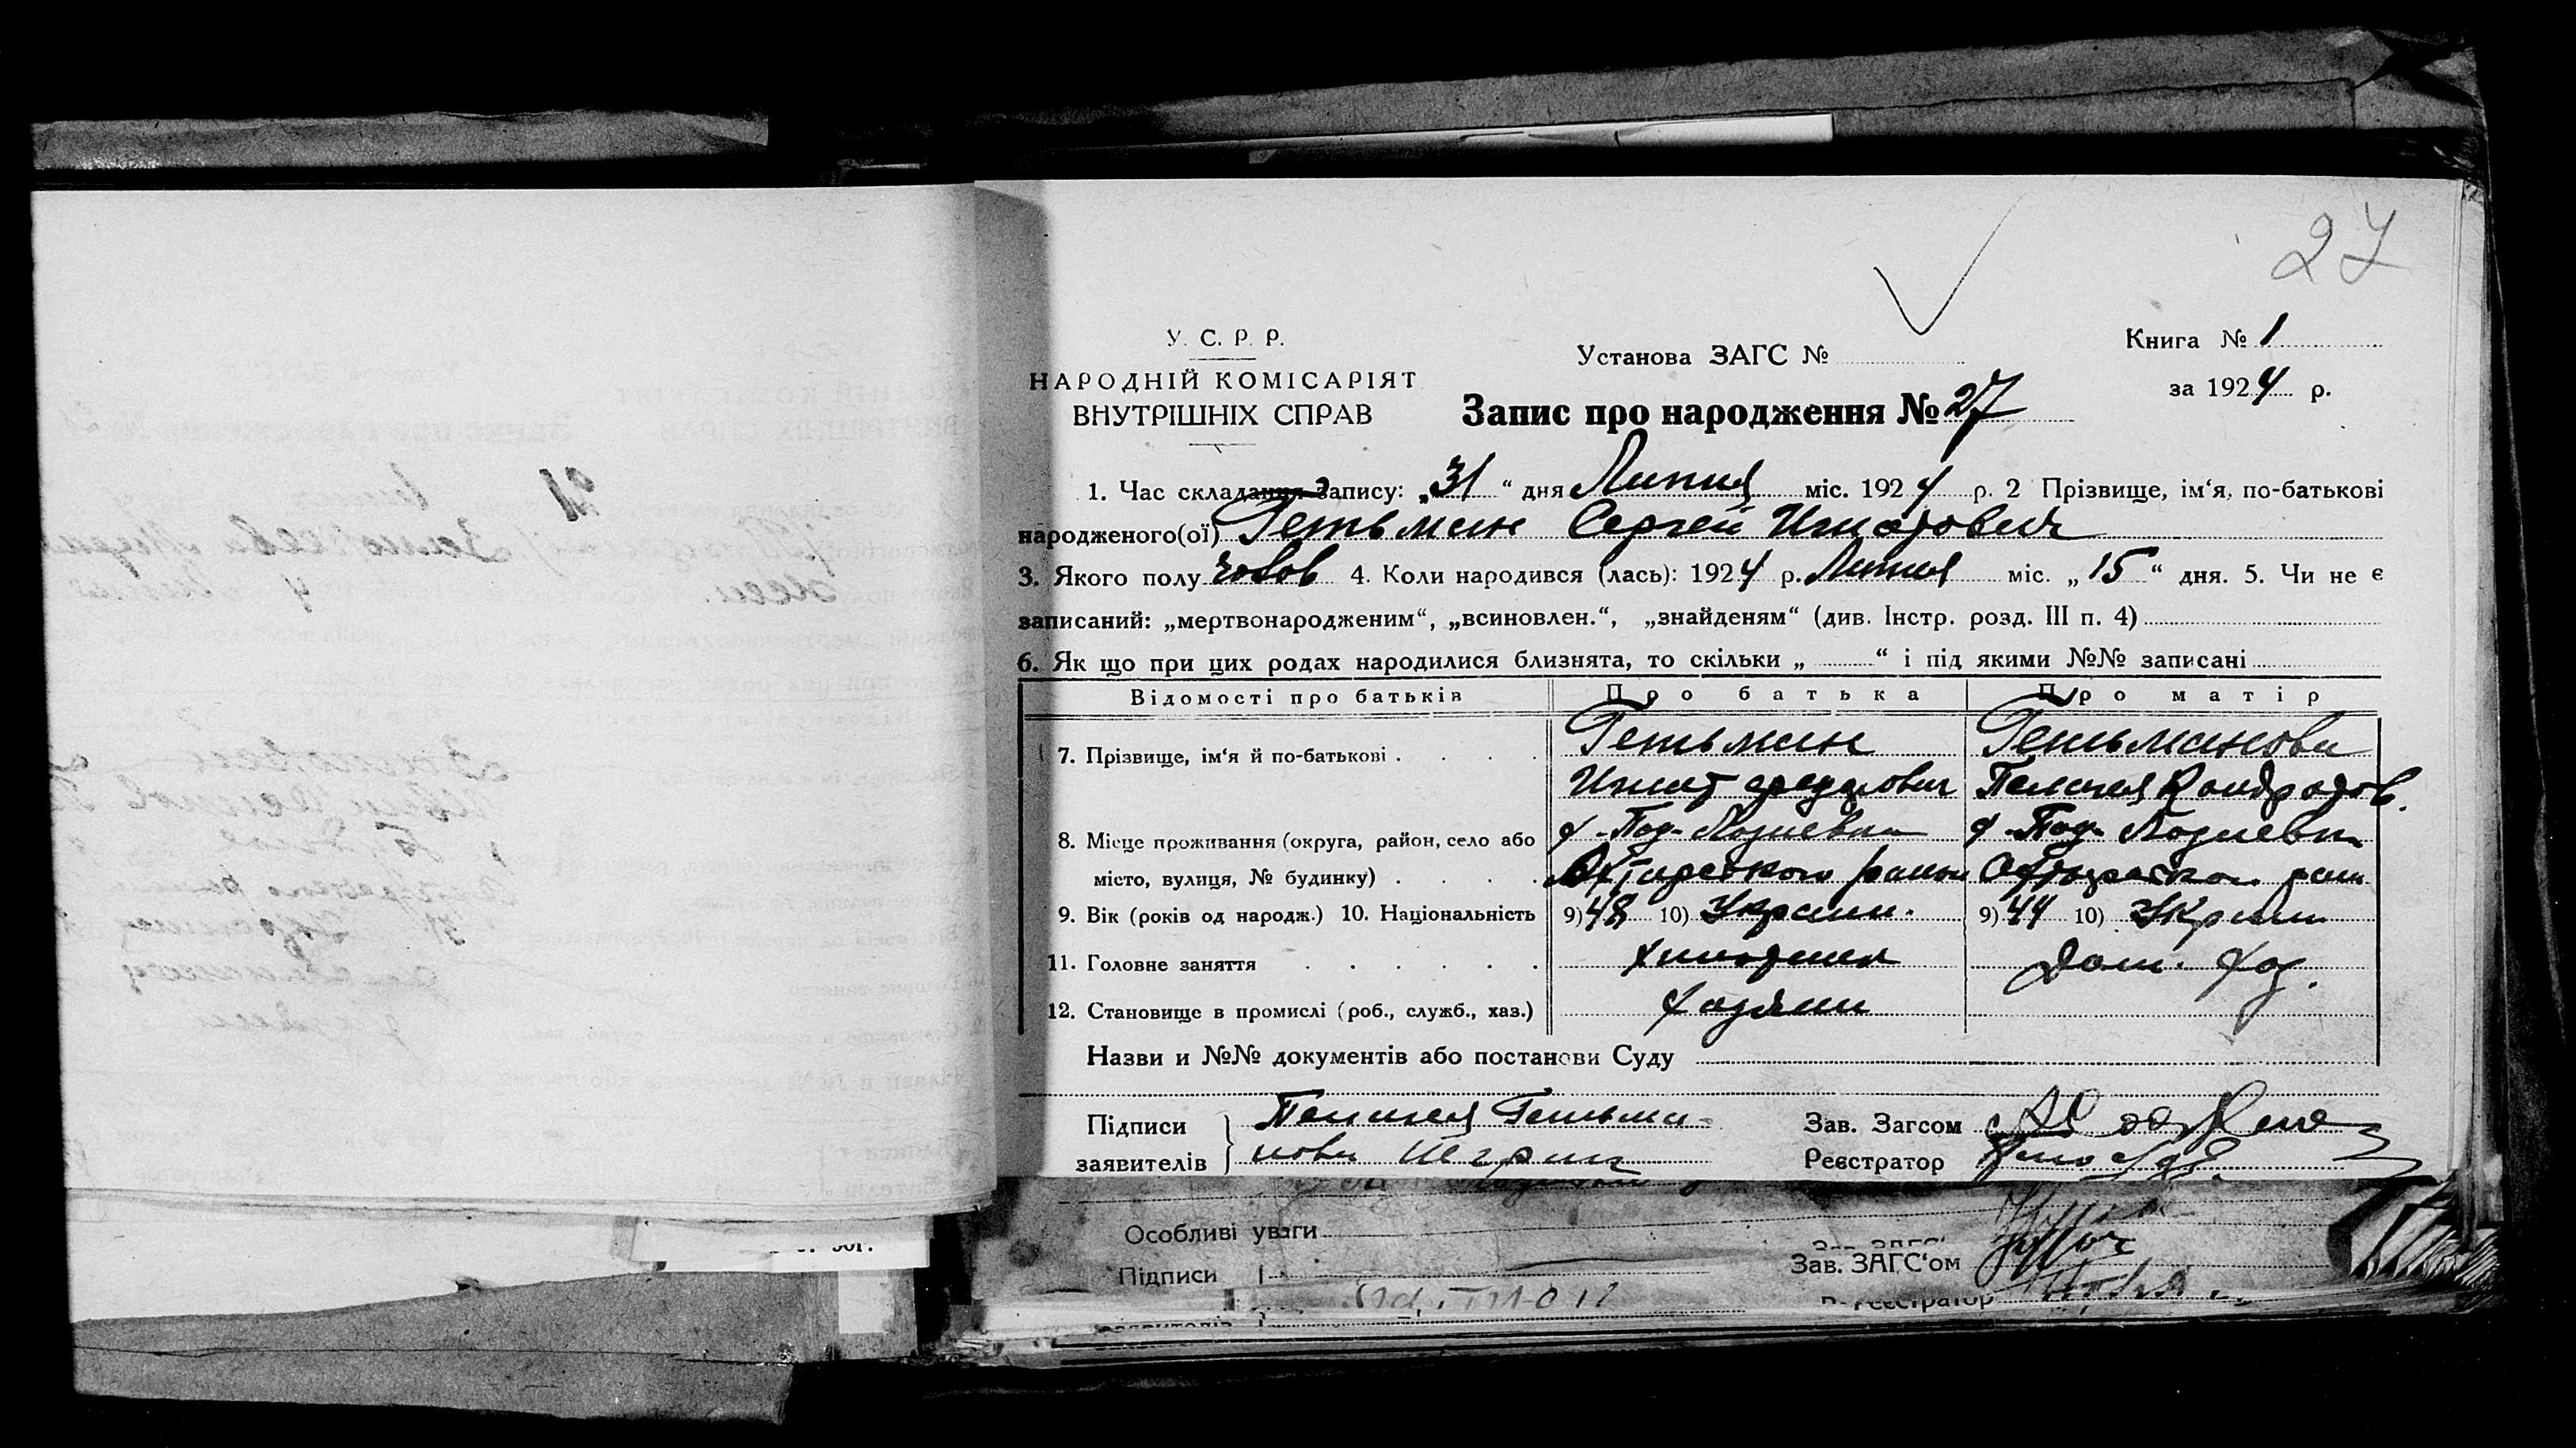 27
У. С. Р. Р.
НАРОДНІЙ КОМІСАРІЯТ
ВНУТРІШНІХ СПРАВ
Установа ЗАГС №
Книга № 1
за 1924 р.
Запис про народження № 27
1. Час складання запису: „31“ дня Липня міс. 1924 р. 2 Прізвище, ім‘я, по-батькові
народженого(ої) Гетьман Сергей Игнатович
3. Якого полу чолов 4. Коли народився (лась): 1924 р. Липня міс. „15“ дня. 5. Чи не є
записаний: „мертвонародженим“, „всиновлен.“, „знайденям“ (див. Інстр. розд. III п. 4)
6. Як що при цих родах народилися близнята, то скільки „ “ і під якими №№ записані
Відомості про батьків Про батька Про матір
7. Прізвище, ім‘я й по-батькові Гетьман Гетьманова
Игнат Пелагея Кондратов.
8. Місце проживання (округа, район, село або х. Под-Лозиевка х. Под-Лозиевк
місто, вулиця, № будинку) Охтирского района Охтирского райн
9. Вік (років од народж.) 10. Національність 9) 48 10) Украин. 9) 44 10) Украин
11. Головне заняття Дом. хоз.
12. Становище в промислі (роб., служб., хаз.) хозяин
Назви и №№ документів або постанови Суду
Підписи Пелагея Гетьма-
заявителів нова неграм
Зав. Загсом
Реєстратор
Особливі уваги
Зав. ЗАГС‘ом
Підписи
Реєстратор
заявителів